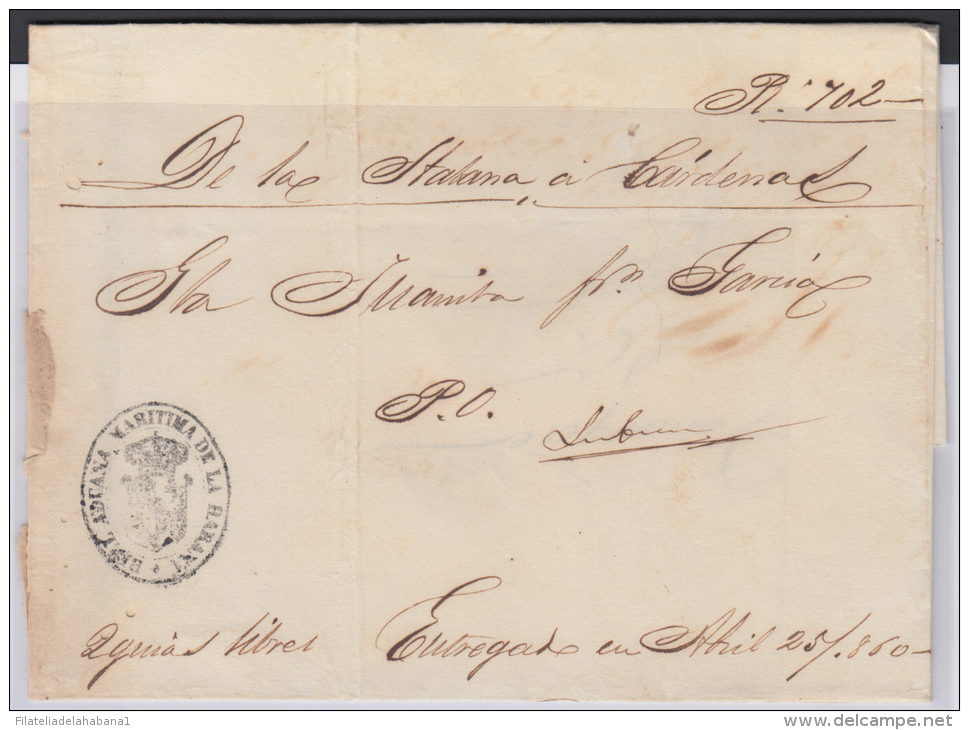 R.ˢ 702
De la Habana a Cárdenas
Gta Juanita frn. García
P. O.
ADUANA MARITIMA DE LA HABANA
2 guias libres
Entregado en Abril 25/.860
Filateliadelahabana1
www.delcampe.net